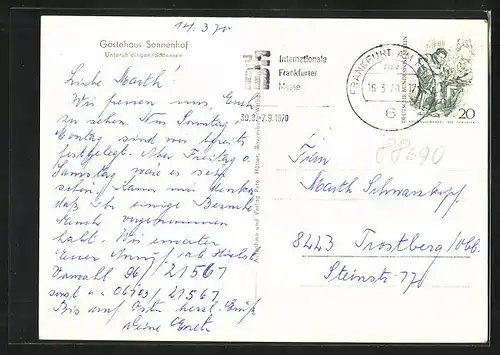 14.3.70
Gästehaus Sonnenhof
Unteruhldingen/Bodensee
Internationale
Frankfurter
Messe
30.8.-2.9.1970
FRANKFURT AM
DEUTSCHE BUNDESPOST BERLIN
20
Liebe Marth!
Wir freuen uns, Euch
zu sehen. Nur Sonntag,
Montag sind wir bereits
festgelegt. Aber Freitag o.
Samstag wäre es sehr
schön. Kann mir denken
daß Ihr einige Besuche
Euch vorgenommen
habt. Wir erwarten
Euren Anruf, ab
Vorwahl 96/21567
sonst 06103/21567
Bis auf Ostern herzl.
Deine
88690
Marth Schwarzkopf
8223 Trostberg/Obb.
Steinstr.